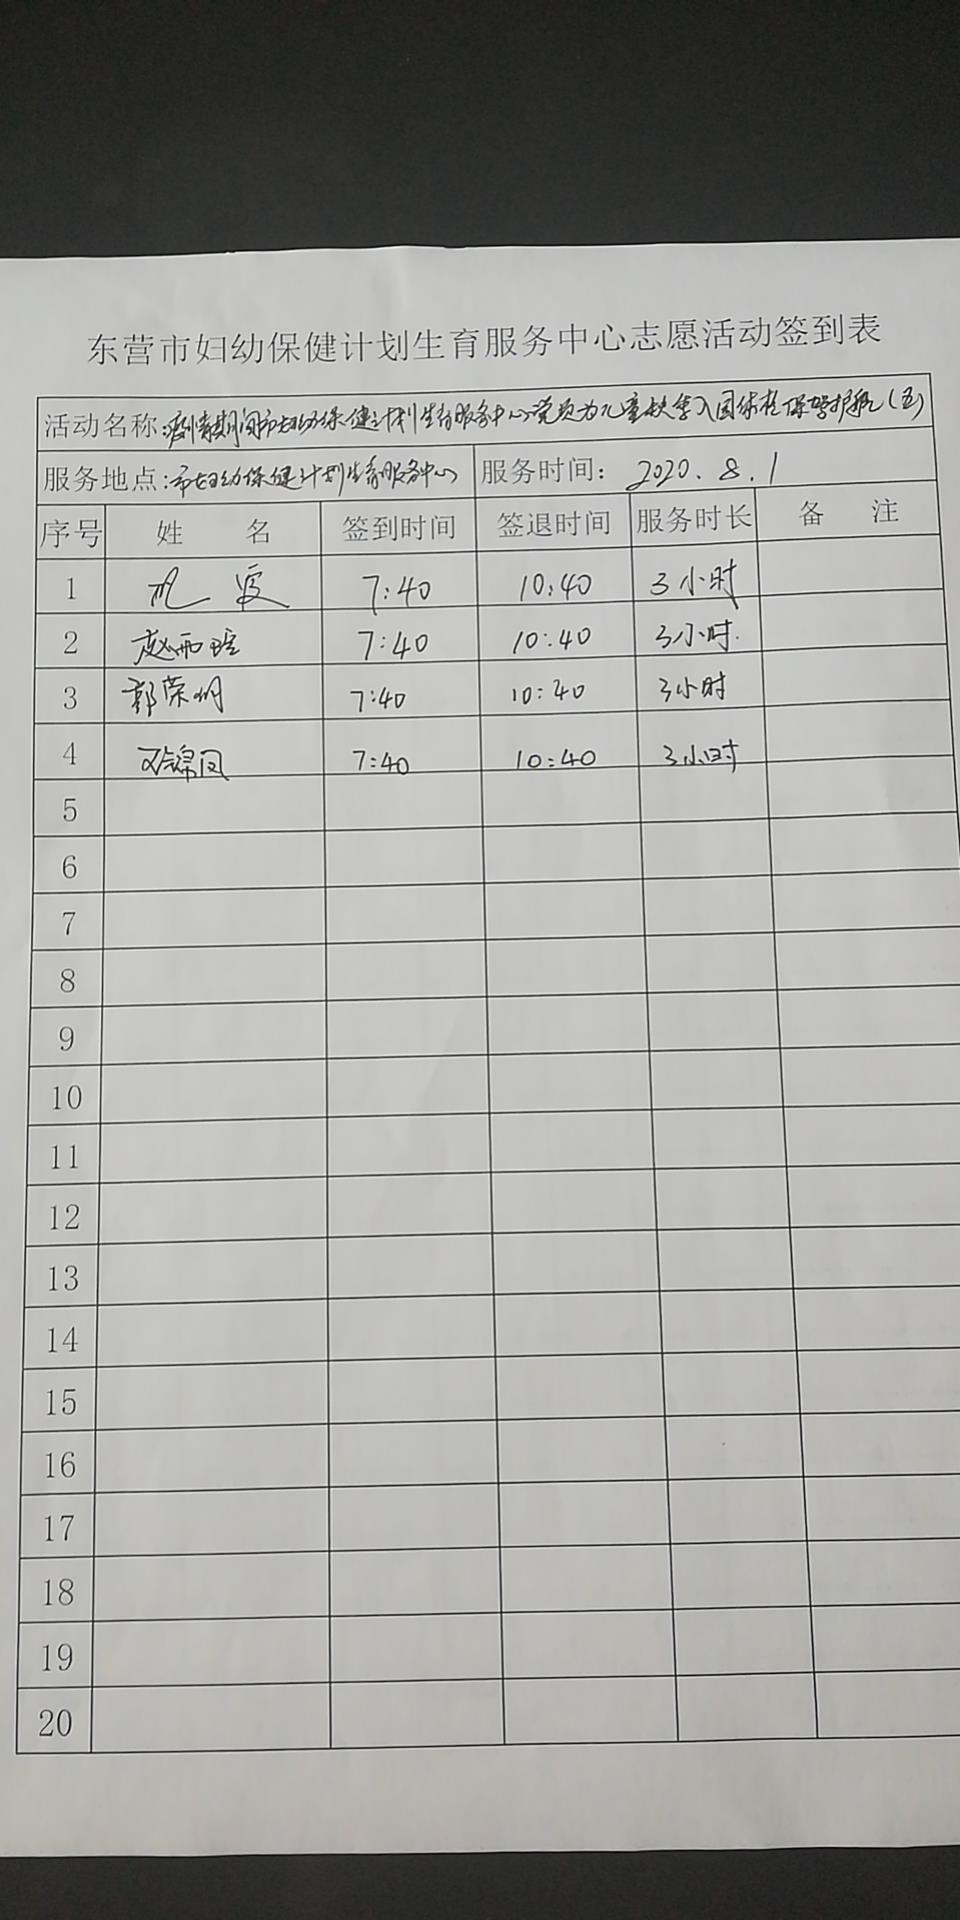 东营市妇幼保健计划生育服务中心志愿活动签到表
活动名称:疫情期间市妇幼保健计划生育服务中心党员为儿童快乐入园体检保驾护航(五)
服务地点:市妇幼保健计划生育服务中心 服务时间: 2020.8.1
序号 姓 名 签到时间 签退时间 服务时长 备 注
1 7:40 10:40 3小时
2 赵雨晗 7:40 10:40 3小时.
3 郭荣明 7:40 10:40 3小时
4 邓锦凤 7:40 10:40 3小时
5
6
7
8
9
10
11
12
13
14
15
16
17
18
19
20